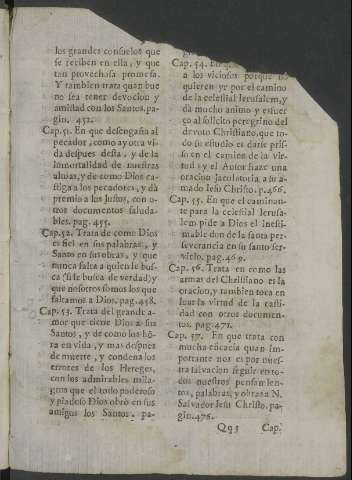 los grandes consuelos que
se reciben en ella, y que
tan provechosa promesa.
Y tambien trata quan bue
no sea tener devocion y
amistad con los Santos. pa-
gin. 452.
Cap. 51. En que desengaña al
pecador, como ay otra vi-
da despues desta, y de la
immortalidad de nuestras
almas, y de como Dios ca-
stiga a los pecadores, y dà
premio a los Justos, con o-
tros documentos saluda-
bles. pag. 455.
Cap. 52. Trata de como Dios
es fiel en sus palabras, y
Santo en sus obras, y que
nunca falta a quien le bus-
ca (si le busca de verdad) y
que nosotros somos los que
faltamos a Dios. pag. 458.
Cap. 53. Trata del grande a-
mor que tiene Dios a sus
Santos, y de como los hō-
ra en vida, y mas despues
de muerte, y condena los
errores de los Hereges,
con los admirables mila-
gros que el todo poderoso
y piadoso Dios obrò en sus
amigos los Santos. pa-
Cap. 54. En que
a los viciosos porque no
quieren yr por el camino
de la celestial Jerusalem, y
dà mucho animo y esfuer
ço al solicito peregrino del
devoto Christiano, que to-
do su estudio es darse pris-
sa en el camino de la vir-
tud, y el Autor haze una
oracion Jaculatoria, a su a-
mado Iesu Christo. p. 466.
Cap. 55. En que el caminan-
te para la celestial Ierusa-
lem pide a Dios el inesti-
mable don de la santa per-
severancia en su santo ser-
vicio. pag. 469.
Cap. 56. Trata en como las
armas del Christiano es la
oracion, y tambien toca en
loar la virtud de la casti-
dad con otros documen-
tos. pag. 471.
Cap. 57. En que trata con
mucha eficacia quan im-
portante nos es por nues-
tra salvacion seguir en to-
dos nuestros pensamien-
tos, palabras, y obras a N.
Salvador Iesu Christo. pa-
gin. 476.
Qq3 Cap.